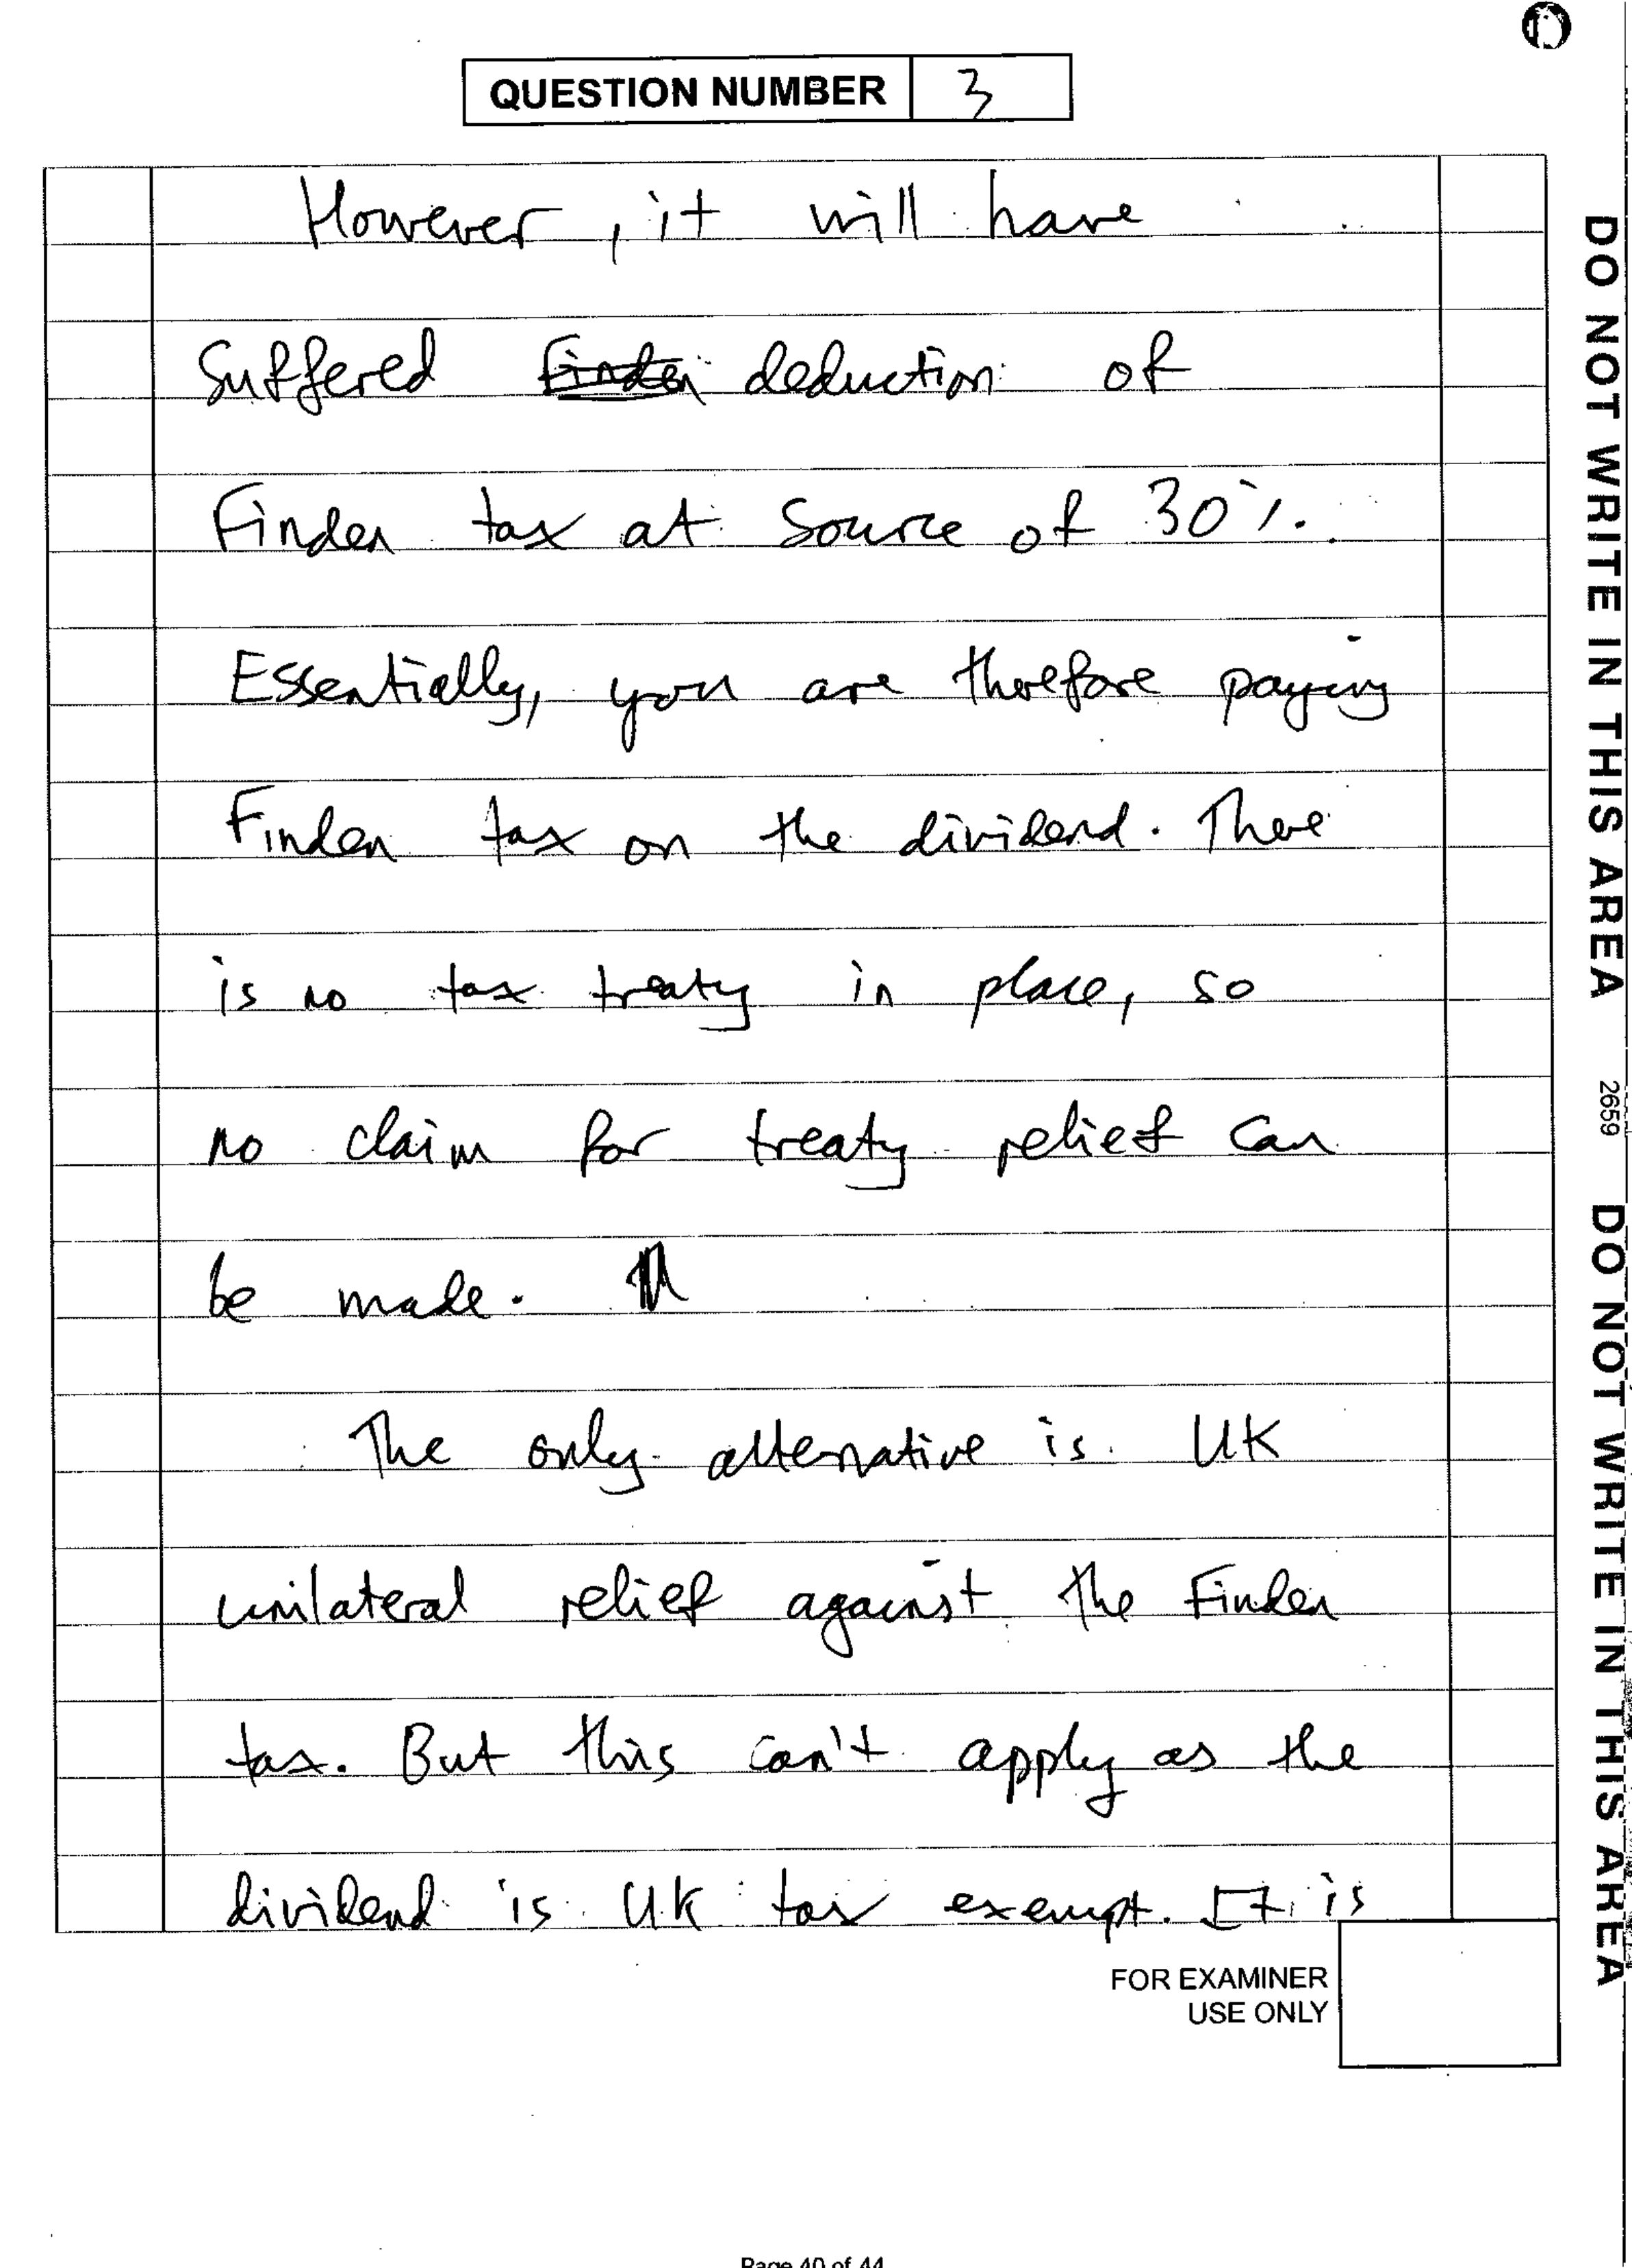 QUESTION NUMBER 3
However, it will have
suffered Finden deduction of
Finden tax at source of 30%.
Essentially, you are therefore paying
Finden tax on the dividend. There
is no tax treaty in place, so
no claim for treaty relief can
be made.
The only alternative is UK
unilateral relief against the Finden
tax. But this can't apply as the
dividend is UK tax exempt. It is
FOR EXAMINER
USE ONLY
Page 40 of 44
DO NOT WRITE IN THIS AREA 2659 DO NOT WRITE IN THIS AREA